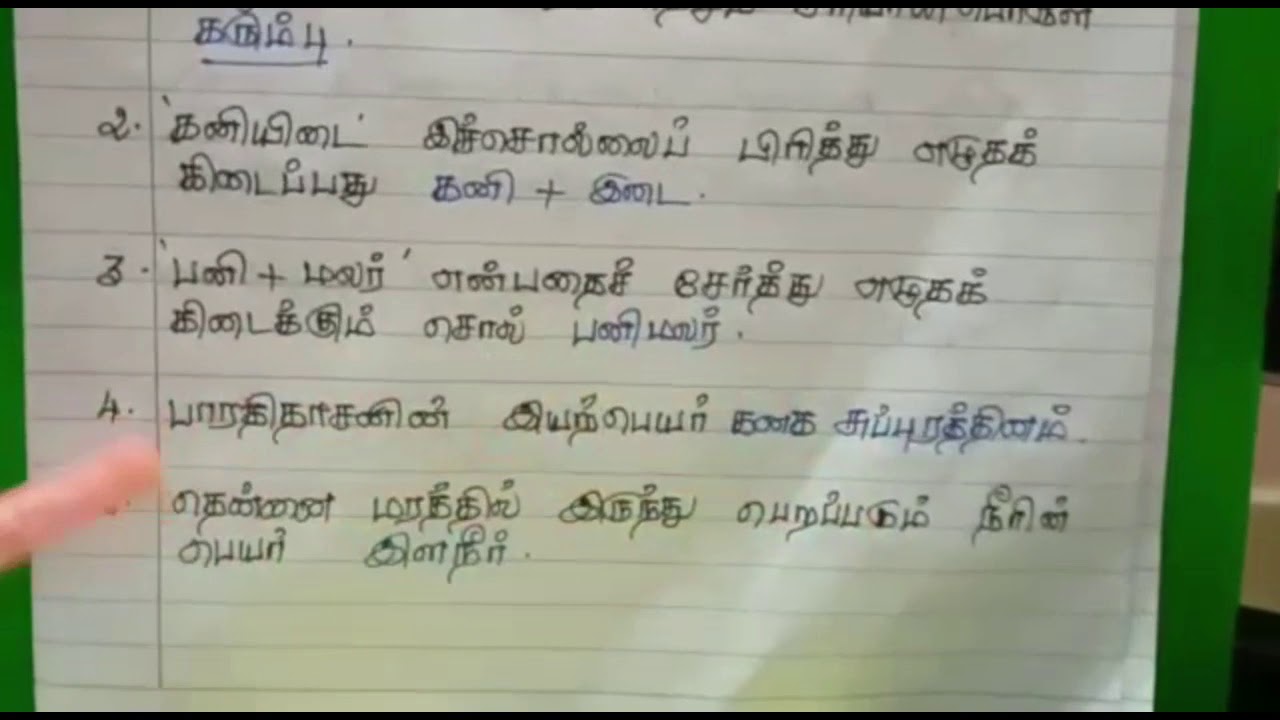 கரும்பு.
2. 'கனியிடை' இச்சொல்லைப் பிரித்து எழுதக்
கிடைப்பது கனி + இடை.
3. 'பனி + மலர்' என்பதைச் சேர்த்து எழுதக்
கிடைக்கும் சொல் பனிமலர்.
4. பாரதிதாசனின் இயற்பெயர் கனக சுப்புரத்தினம்.
தென்னை மரத்தில் இருந்து பெறப்படும் நீரின்
பெயர் இளநீர்.